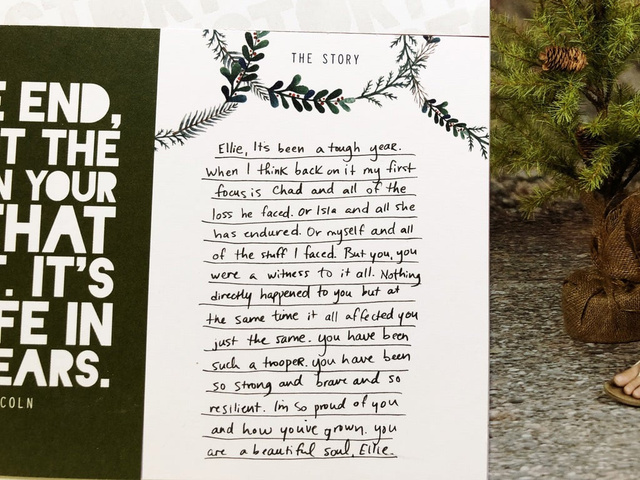 E END,
T THE
N YOUR
THAT
T. IT'S
FE IN
EARS.
COLN
THE STORY
Ellie, Its been a tough year.
When I think back on it my first
focus is Chad and all of the
loss he faced. Or Isla and all she
has endured. Or myself and all
of the stuff I faced. But you, you
were a witness to it all. Nothing
directly happened to you but at
the same time it all affected you
just the same. you have been
such a trooper. you have been
so strong and brave and so
resilient. Im so proud of you
and how you've grown. you
are a beautiful soul, Ellie.